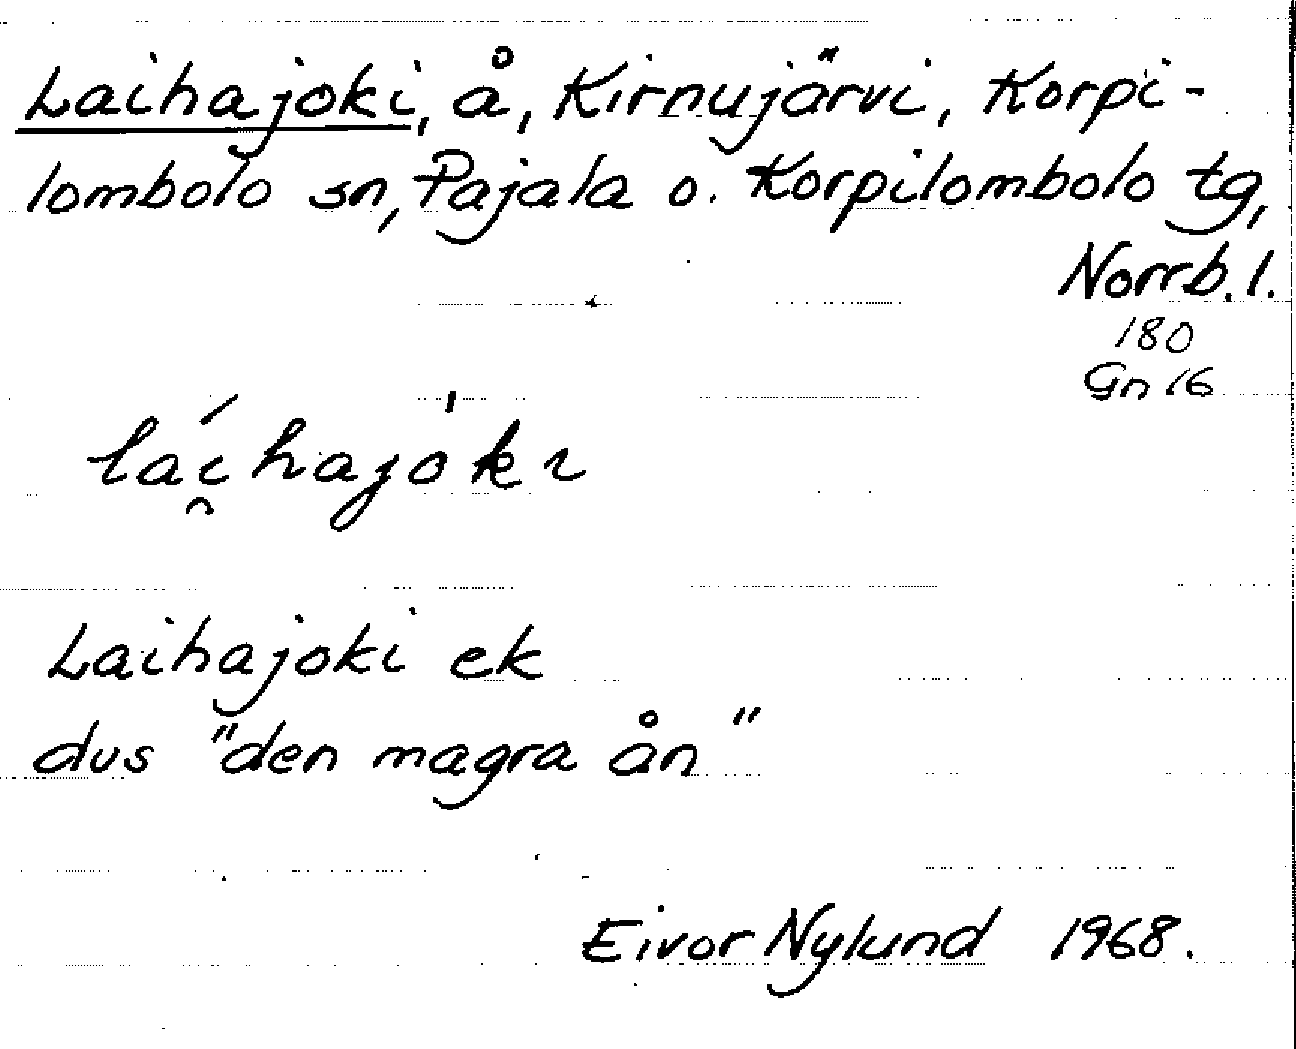 Laihajoki, å, Kirnujärvi, Korpi-
lombolo sn, Pajala o. Korpilombolo tg,
Norrb. l.
180
Gn 16
lái̯hajo̍kı
Laihajoki ek
dvs "den magra ån"
Eivor Nylund 1968.